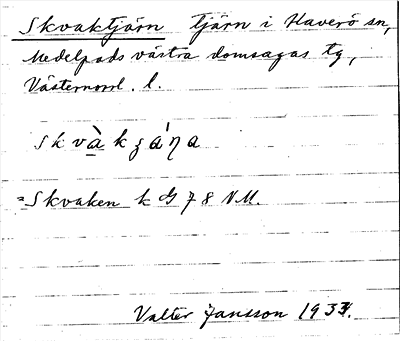 Skvaktjärn tjärn i Haverö sn,
Medelpads västra domsagas tg,
Västernorrl. l.
skvàkʒáŋa
=Skvaken k G 78 NM.
Valter Jansson 1934.